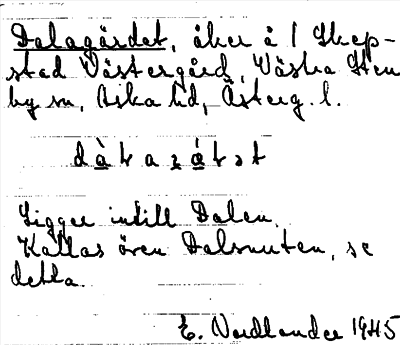 Dalagärdet, åker å 1 Skep-
stad Västergård, Västra Sten
by sn, Aska hd, Österg. l.
Ligger intill Dalen.
Kallas även Dalsnuten, se
detta.
E. Nordlander 1945